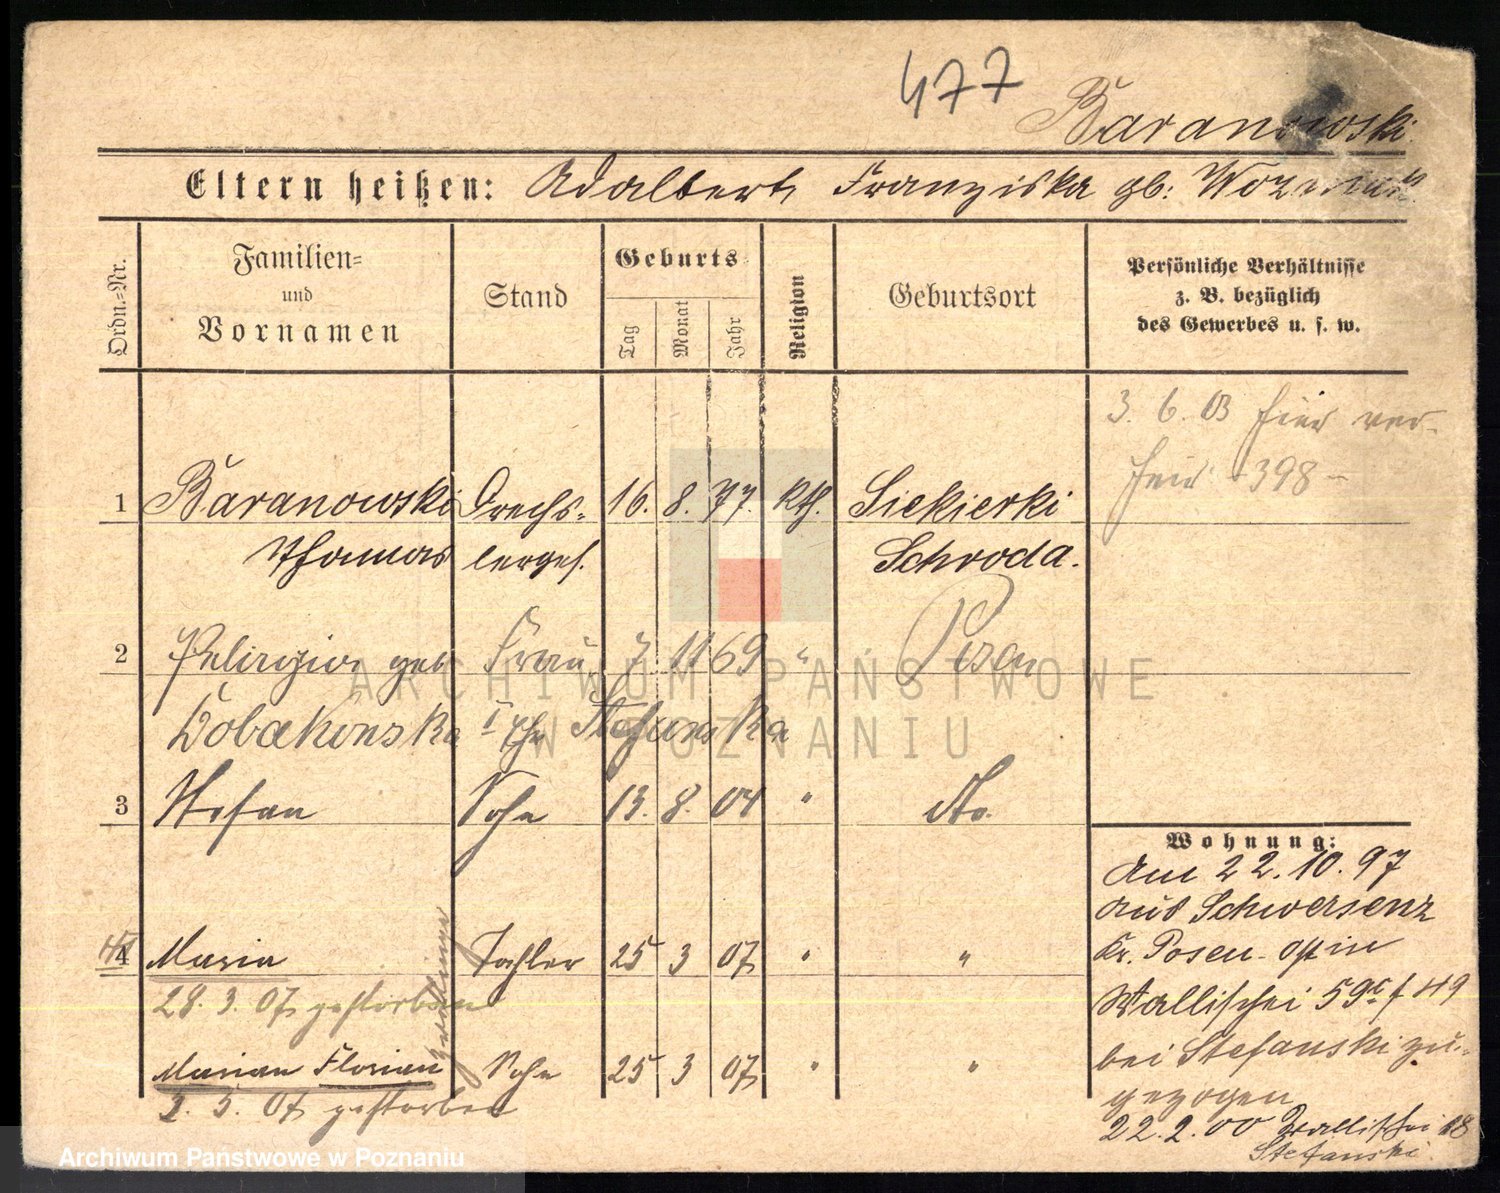 477
Baranowski
Eltern heißen: Adalbert, Franziska gb:
Ordn.-Nr.
Familien-
und
Vornamen
Stand
Geburts
Tag
Monat
Jahr
Religion
Geburtsort
Persönliche Verhältnisse
z. B. bezüglich
des Gewerbes u. s. w.
3. 6. 03 hier ver-
heir 398 -
1 Baranowski Drechs- 16. 8. 77. kth. Siekierki
Thomas lerges. Schroda.
2 Pelagia geb Frau 7 11 69 " Posen
I Ehe
3 Stefan Sohn 13. 8. 04 " do.
4 Maria Tochter 25 3 07 " "
28. 3. 07 gestorben
Zwillinge
Marian Florian Sohn 25 3 07 " "
3. 5. 07 gestorben
Wohnung:
Am 22.10.97
aus Schwersenz
Kr. Posen-Ost in
Wallischei 59
bei Stefanski zu-
gezogen
22.2.00 Wallischei 18
Stefanski
ARCHIWUM PAŃSTWOWE
W POZNANIU
Archiwum Państwowe w Poznaniu